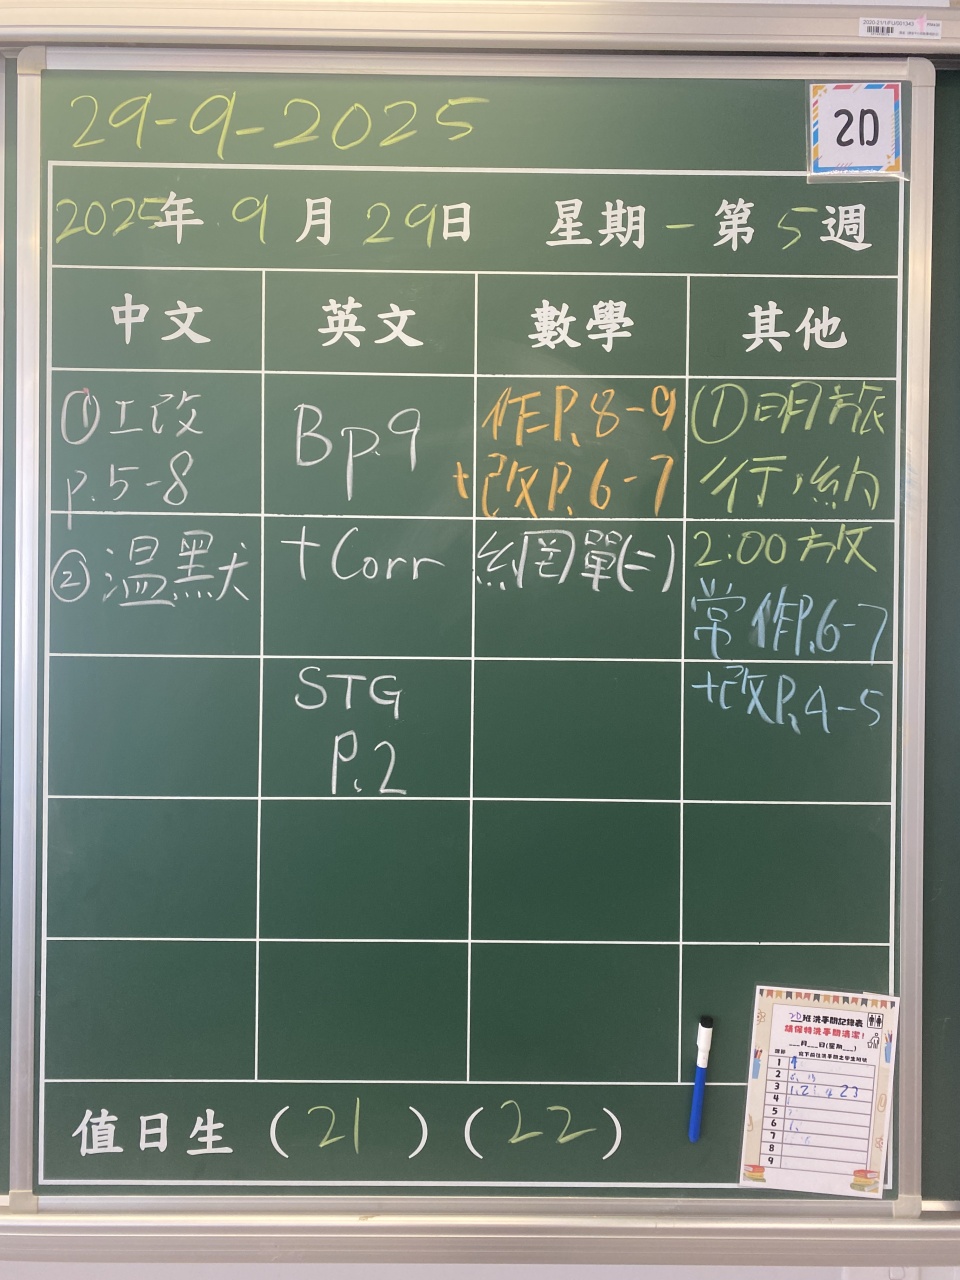 2020-21/1/FU/001343
29-9-2025
2D
2025年 9月 29日 星期一 第5週
中文 英文 數學 其他
①工改
p.5-8
②溫默
Bp.9
+Corr
STG
P.2
作P.8-9
+改P.6-7
網單(二)
①明旅
行,約
2:00放
常作P.6-7
+改P.4-5
值日生 (21) (22)
2D班洗手間記錄表
請保持洗手間清潔!
__月__日(星期__)
1
2
3
4
5
6
7
8
9